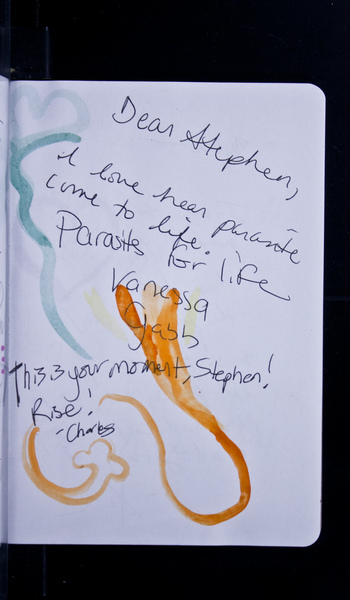 Dear Stephen,
I love hear parasite
come to life.
Parasites for life
Vanessa
Gash
This is your moment, Stephen!
Rise!
- Charles